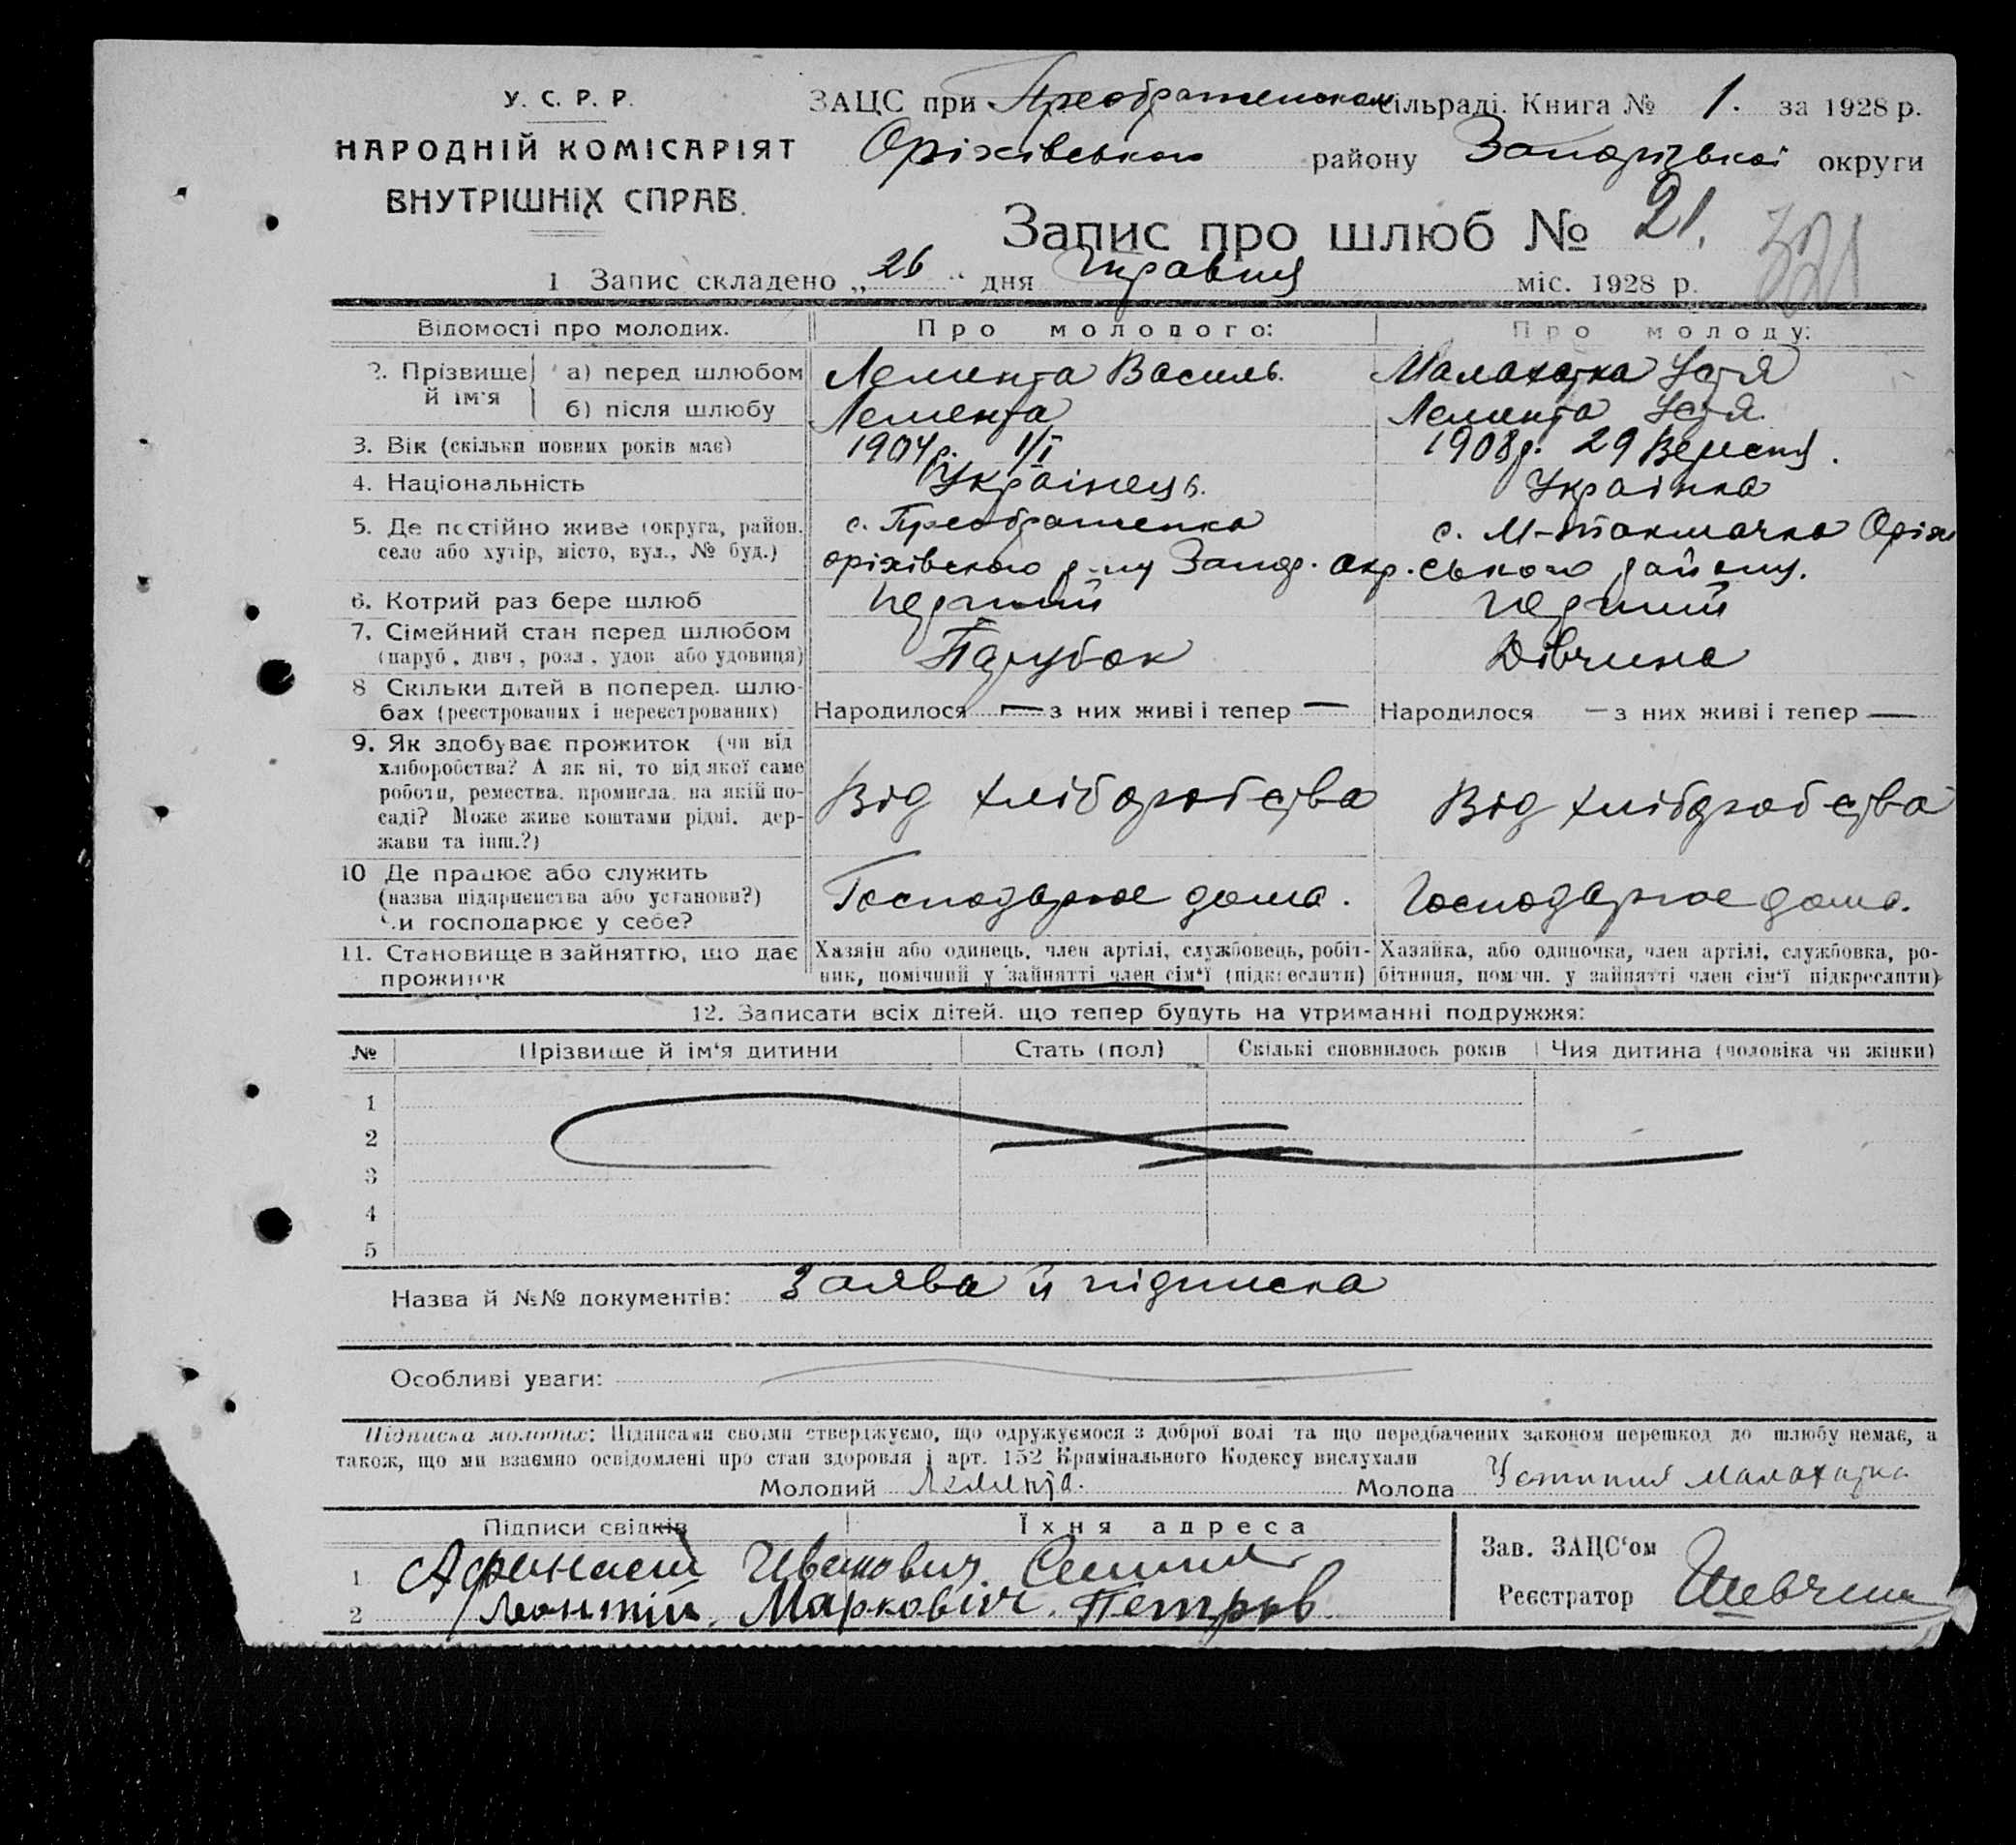 У. С. Р. Р.
НАРОДНІЙ КОМІСАРІЯТ
ВНУТРІШНІХ СПРАВ.
ЗАЦС при Преображенській сільраді. Книга № 1. за 1928 р.
Оріхівського району Запорізької округи
Запис про шлюб № 21.
321
1 Запис складено „26" дня Травня міс. 1928 р.
Відомості про молодих. Про молодого: Про молоду:
2. Прізвище й ім'я а) перед шлюбом Лемента Василь. Малахатка Устя
б) після шлюбу Лемента Лемента Устя.
3. Вік (скільки повних років має) 1904 р. 1/I 1908 р. 29 Вересня.
4. Національність Українець. Українка
5. Де постійно живе (округа, район, с. Преображенка с. М-Токмачка Оріхі
село або хутір, місто, вул., № буд.) оріхівського р-ну Запор. окр. ського району.
6. Котрий раз бере шлюб первий первий
7. Сімейний стан перед шлюбом Парубок Дівчина
(паруб., дівч., розл., удов. або удовиця)
8 Скільки дітей в поперед. шлю-
бах (реєстрованих і нереєстрованих) Народилося — з них живі і тепер — Народилося — з них живі і тепер —
9. Як здобуває прожиток (чи від
хліборобства? А як ні, то від якої саме
роботи, ремества, промисла, на якій по- Від хліборобства Від хліборобства
саді? Може живе коштами рідні, дер-
жави та інш.?)
10 Де працює або служить
(назва підприємства або установи?) Господарює дома. Господарює дома.
Чи господарює у себе?
11. Становище в зайняттю, що дає Хазяїн або одинець, член артілі, службовець, робіт- Хазяйка, або одиночка, член артілі, службовка, ро-
прожиток ник, помічний у зайнятті член сім'ї (підкреслити) бітниця, помічн. у зайнятті член сім'ї підкреслити)
12. Записати всіх дітей, що тепер будуть на утриманні подружжя:
№ Прізвище й ім'я дитини Стать (пол) Скількі сповнилось років Чия дитина (чоловіка чи жінки)
1
2
3
4
5
Назва й №№ документів: Заява й підписка
Особливі уваги:
Підписка молодих: Підписами своїми стверджуємо, що одружуємося з доброї волі та що передбачених законом перешкод до шлюбу немає, а
також, що ми взаємно освідомлені про стан здоровля і арт. 152 Кримінального Кодексу вислухали
Молодий Лемента. Молода Устиния Малахатка
Підписи свідків Їхня адреса
1 Афанасий Иванович
2 Леонтій. Маркович. Петров.
Зав. ЗАЦС'ом
Реєстратор